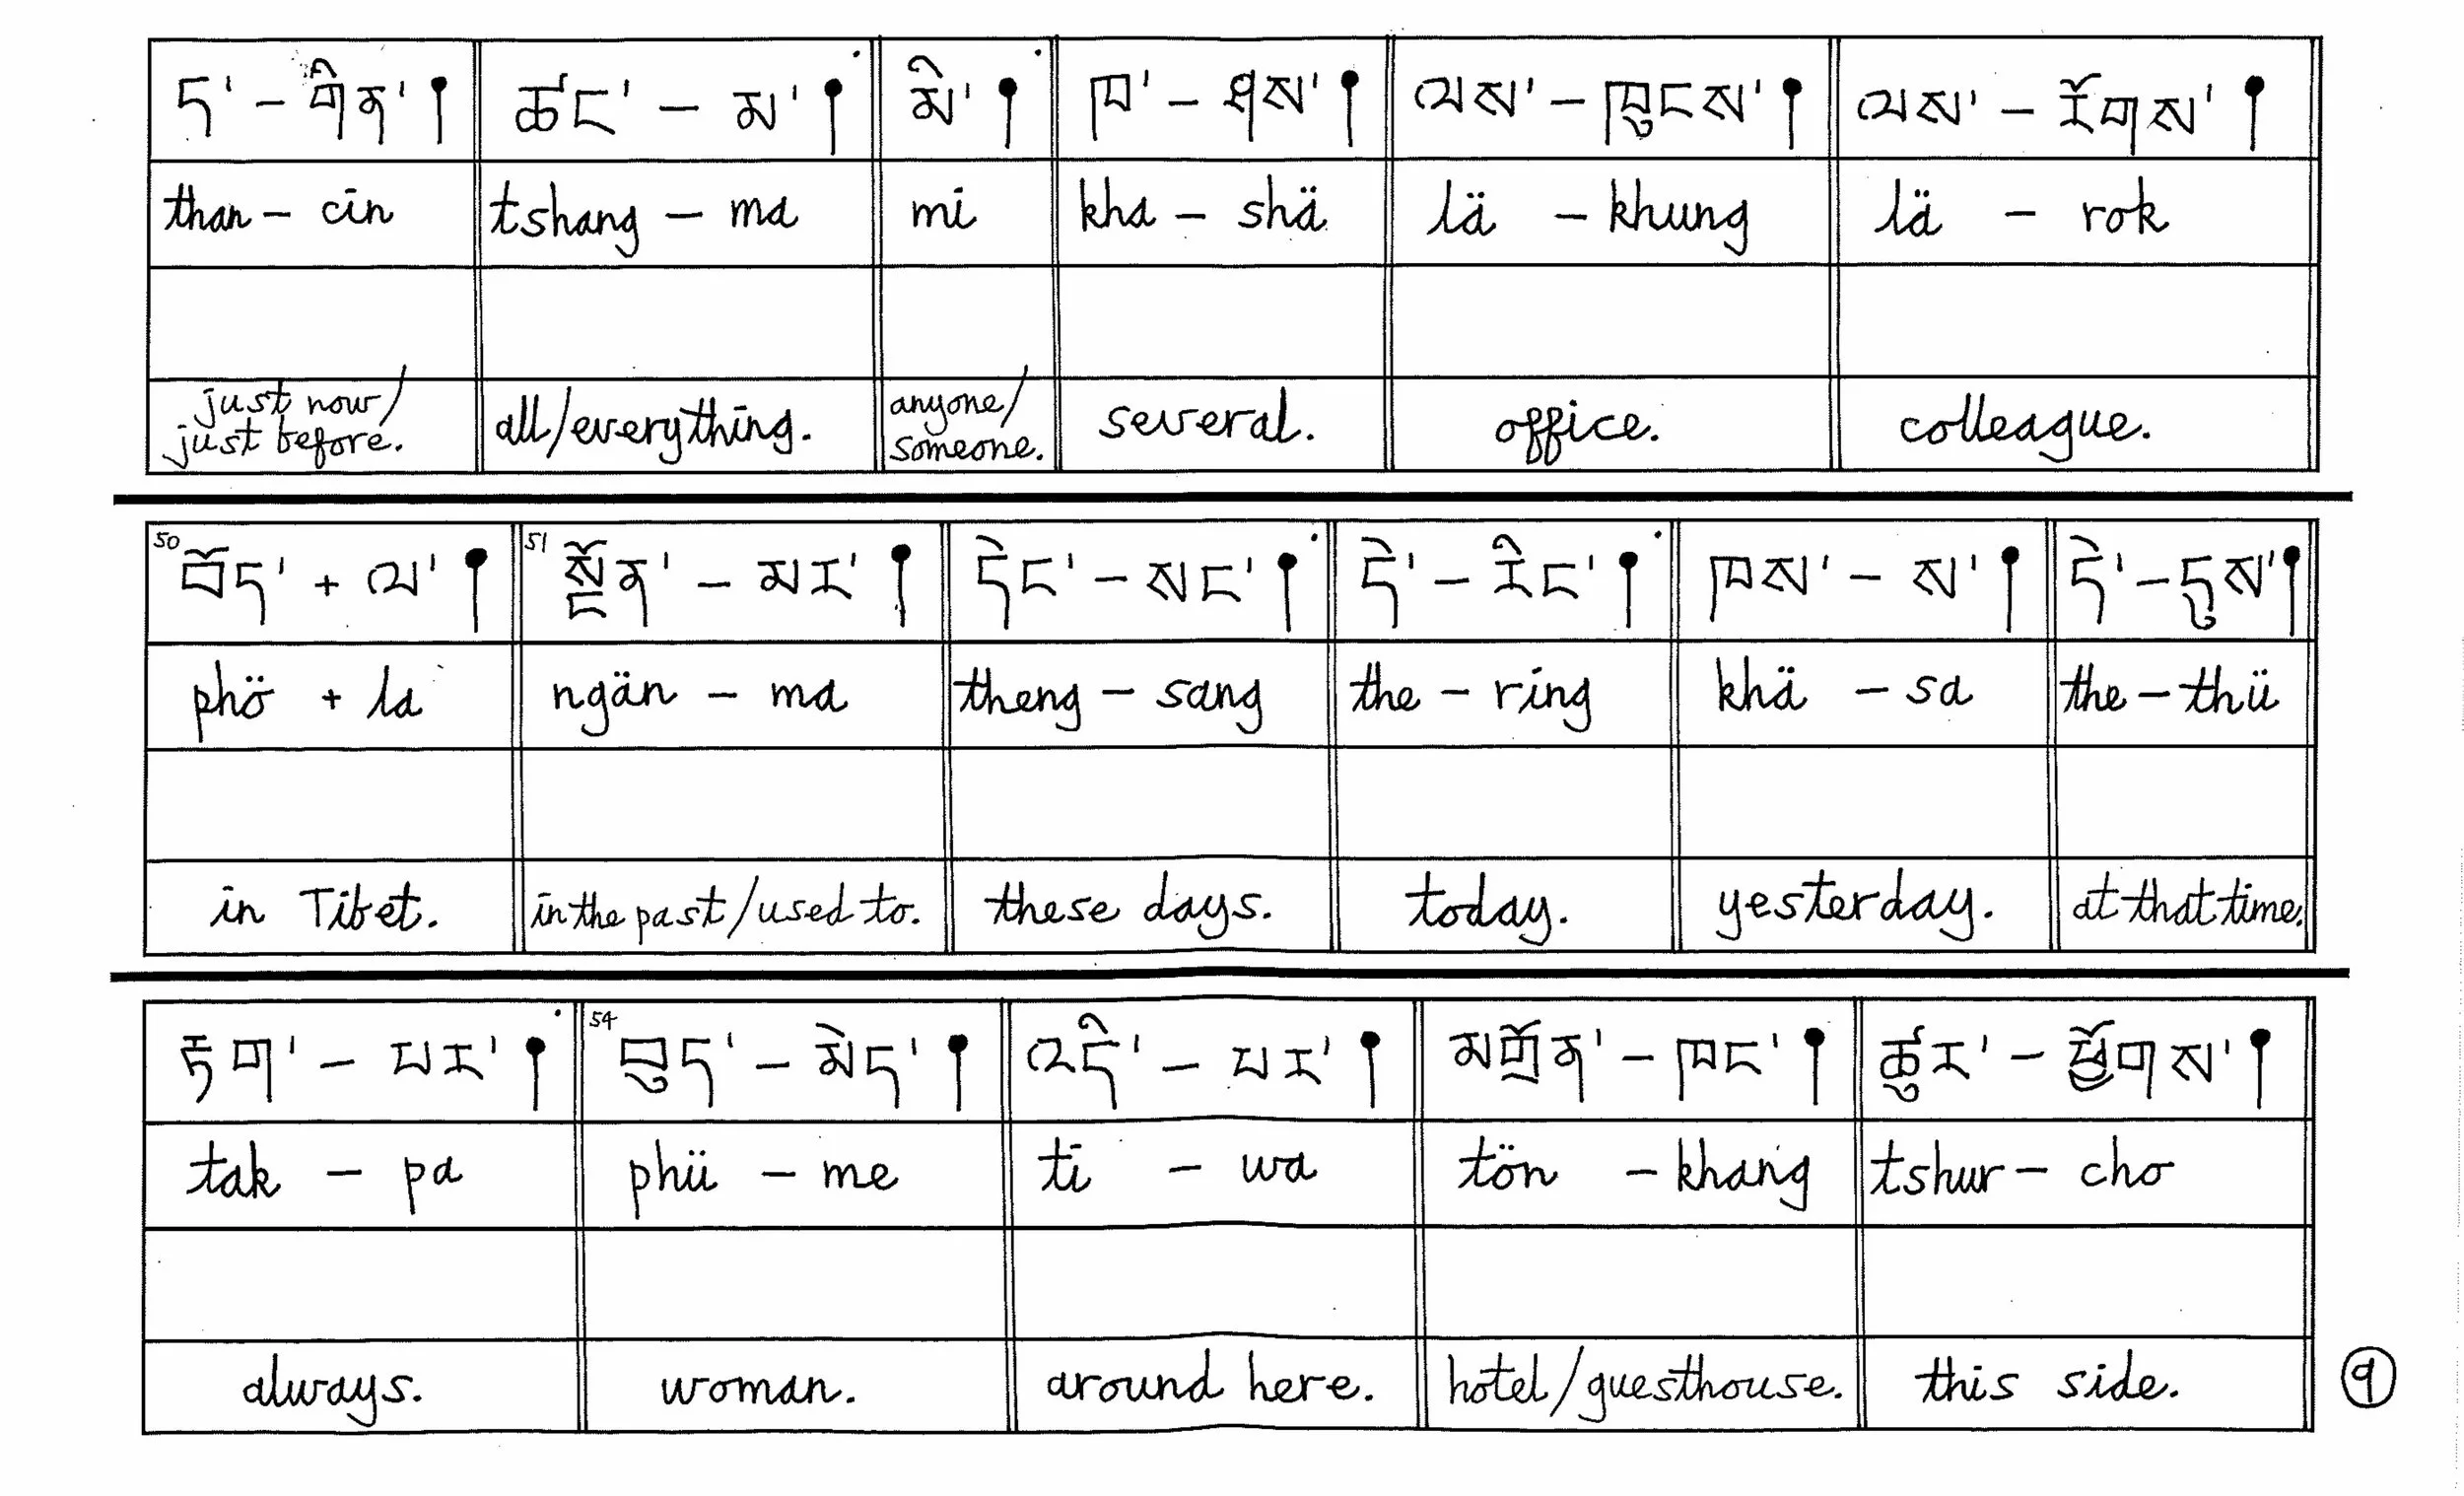 ད་ – གིན་ ། ཚང་ – མ་ ། མི་ ། ཁ་ – ཤས་ ། ལས་ – ཁུངས་ ། ལས་ – རོགས་ །
than – cin tshang – ma mi kha – shä lä – khung lä – rok
just now/ just before. all/everything. anyone/ someone. several. office. colleague.
50 བོད་ + ལ་ ། 51 སྔོན་ – མར་ ། དེང་ – སང་ ། དེ་ – རིང་ ། ཁས་ – ས་ ། དེ་ – དུས་ །
phö + la ngän – ma theng – sang the – ring khä – sa the – thü
in Tibet. in the past/used to. these days. today. yesterday. at that time.
རྟག་ – པར་ ། 54 བུད་ – མེད་ ། འདི་ – པར་ ། མགྲོན་ – ཁང་ ། ཚུར་ – ཕྱོགས་ །
tak – pa phü – me ti – wa tön – khang tshur – cho
always. woman. around here. hotel/guesthouse. this side.
9